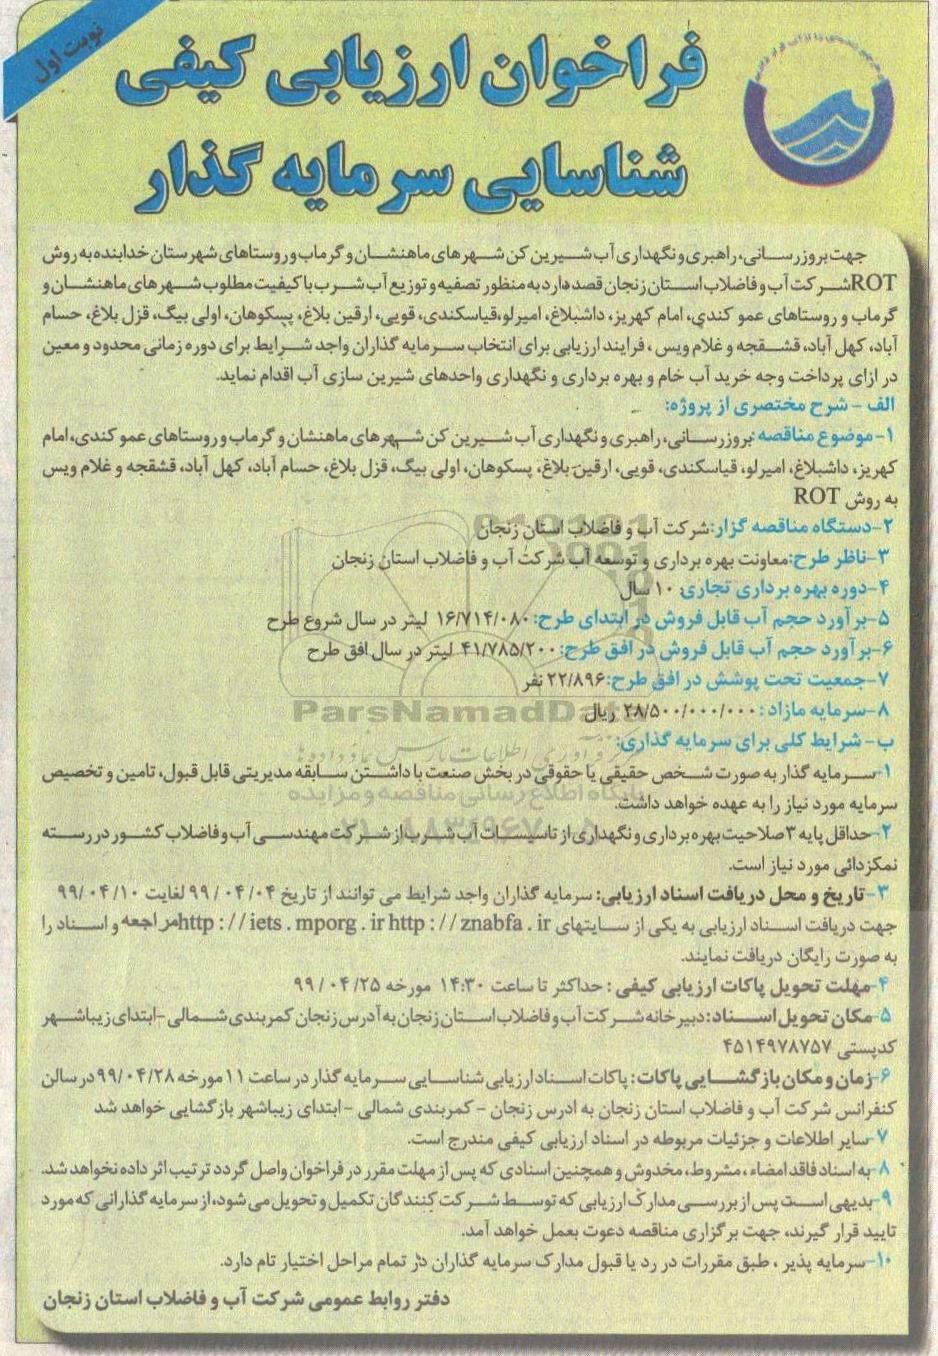 نوبت اول
فراخوان ارزیابی کیفی
شناسایی سرمایه گذار
جهت بروزرسانی، راهبری و نگهداری آب شیرین کن شهرهای ماهنشان و گرماب و روستاهای شهرستان خدابنده به روش
ROT شرکت آب و فاضلاب استان زنجان قصد دارد به منظور تصفیه و توزیع آب شرب با کیفیت مطلوب شهرهای ماهنشان و
گرماب و روستاهای عمو کندی، امام کهریز، داشبلاغ، امیرلو، قیاسکندی، قویی، ارقین بلاغ، پسکوهان، اولی بیگ، قزل بلاغ، حسام
آباد، کهل آباد، قشقجه و غلام ویس ، فرایند ارزیابی برای انتخاب سرمایه گذاران واجد شرایط برای دوره زمانی محدود و معین
در ازای پرداخت وجه خرید آب خام و بهره برداری و نگهداری واحدهای شیرین سازی آب اقدام نماید.
الف - شرح مختصری از پروژه:
۱-موضوع مناقصه: بروزرسانی، راهبری و نگهداری آب شیرین کن شهرهای ماهنشان و گرماب و روستاهای عمو کندی، امام
کهریز، داشبلاغ، امیرلو، قیاسکندی، قویی، ارقین بلاغ، پسکوهان، اولی بیگ، قزل بلاغ، حسام آباد، کهل آباد، قشقجه و غلام ویس
به روش ROT
۲-دستگاه مناقصه گزار: شرکت آب و فاضلاب استان زنجان
۳-ناظر طرح: معاونت بهره برداری و توسعه آب شرکت آب و فاضلاب استان زنجان
۴-دوره بهره برداری تجاری: ۱۰ سال
۵-برآورد حجم آب قابل فروش در ابتدای طرح: ۱۶/۷۱۴/۰۸۰ لیتر در سال شروع طرح
۶-برآورد حجم آب قابل فروش در افق طرح: ۴۱/۷۸۵/۲۰۰ لیتر در سال افق طرح
۷-جمعیت تحت پوشش در افق طرح: ۲۲/۸۹۶ نفر
۸-سرمایه مازاد : ۲۸/۵۰۰/۰۰۰/۰۰۰ ریال
ParsNamadData
ب- شرایط کلی برای سرمایه گذاری:
۱-سرمایه گذار به صورت شخص حقیقی یا حقوقی در بخش صنعت با داشتن سابقه مدیریتی قابل قبول، تامین و تخصیص
پایگاه اطلاع رسانی مناقصه و مزایده
سرمایه مورد نیاز را به عهده خواهد داشت.
۲-حداقل پایه ۳ صلاحیت بهره برداری و نگهداری از تاسیسات آب شرب از شرکت مهندسی آب و فاضلاب کشور در رسته
نمکزدائی مورد نیاز است.
۳-تاریخ و محل دریافت اسناد ارزیابی: سرمایه گذاران واجد شرایط می توانند از تاریخ ۹۹/۰۴/۰۴ لغایت ۹۹/۰۴/۱۰
جهت دریافت اسناد ارزیابی به یکی از سایتهای http : // iets . mporg . ir http : // znabfa . ir مراجعه و اسناد را
به صورت رایگان دریافت نمایند.
۴-مهلت تحویل پاکات ارزیابی کیفی : حداکثر تا ساعت ۱۴:۳۰ مورخه ۹۹/۰۴/۲۵
۵-مکان تحویل اسناد: دبیرخانه شرکت آب و فاضلاب استان زنجان به آدرس زنجان کمربندی شمالی -ابتدای زیباشهر
کدپستی ۴۵۱۴۹۷۸۷۵۷
۶-زمان و مکان بازگشایی پاکات: پاکات اسناد ارزیابی شناسایی سرمایه گذار در ساعت ۱۱ مورخه ۹۹/۰۴/۲۸ در سالن
کنفرانس شرکت آب و فاضلاب استان زنجان به ادرس زنجان - کمربندی شمالی -ابتدای زیباشهر بازگشایی خواهد شد
۷-سایر اطلاعات و جزئیات مربوطه در اسناد ارزیابی کیفی مندرج است.
۸-به اسناد فاقد امضاء ، مشروط، مخدوش و همچنین اسنادی که پس از مهلت مقرر در فراخوان واصل گردد ترتیب اثر داده نخواهد شد.
۹-بدیهی است پس از بررسی مدارک ارزیابی که توسط شرکت کنندگان تکمیل و تحویل می شود، از سرمایه گذارانی که مورد
تایید قرار گیرند، جهت برگزاری مناقصه دعوت بعمل خواهد آمد.
۱۰-سرمایه پذیر ، طبق مقررات در رد یا قبول مدارک سرمایه گذاران در تمام مراحل اختیار تام دارد.
دفتر روابط عمومی شرکت آب و فاضلاب استان زنجان